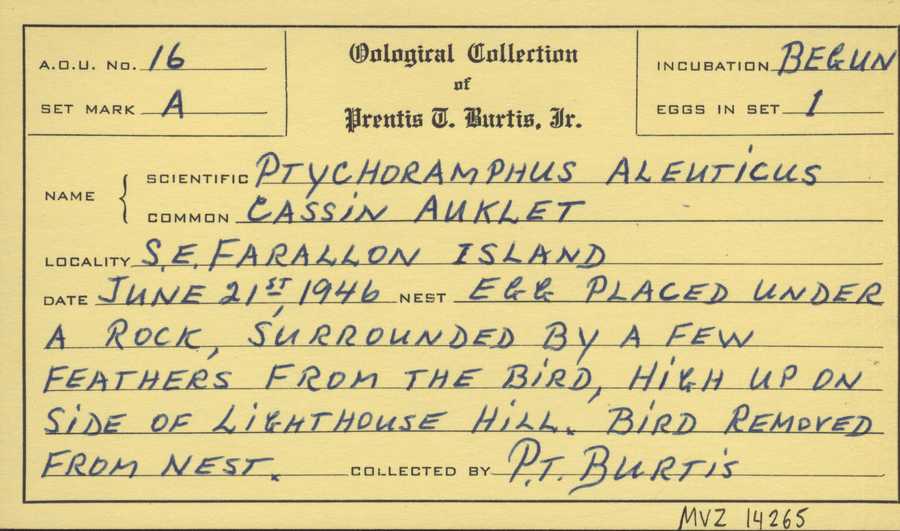 A.O.U. No. 16
SET MARK A
Oological Collection
of
Prentis T. Burtis, Jr.
INCUBATION BEGUN
EGGS IN SET 1
NAME
SCIENTIFIC PTYCHORAMPHUS ALEUTICUS
COMMON CASSIN AUKLET
LOCALITY S.E. FARALLON ISLAND
DATE JUNE 21ST, 1946 NEST EGG PLACED UNDER
A ROCK, SURROUNDED BY A FEW
FEATHERS FROM THE BIRD, HIGH UP ON
SIDE OF LIGHTHOUSE HILL. BIRD REMOVED
FROM NEST. COLLECTED BY P.T. BURTIS
MVZ 14265